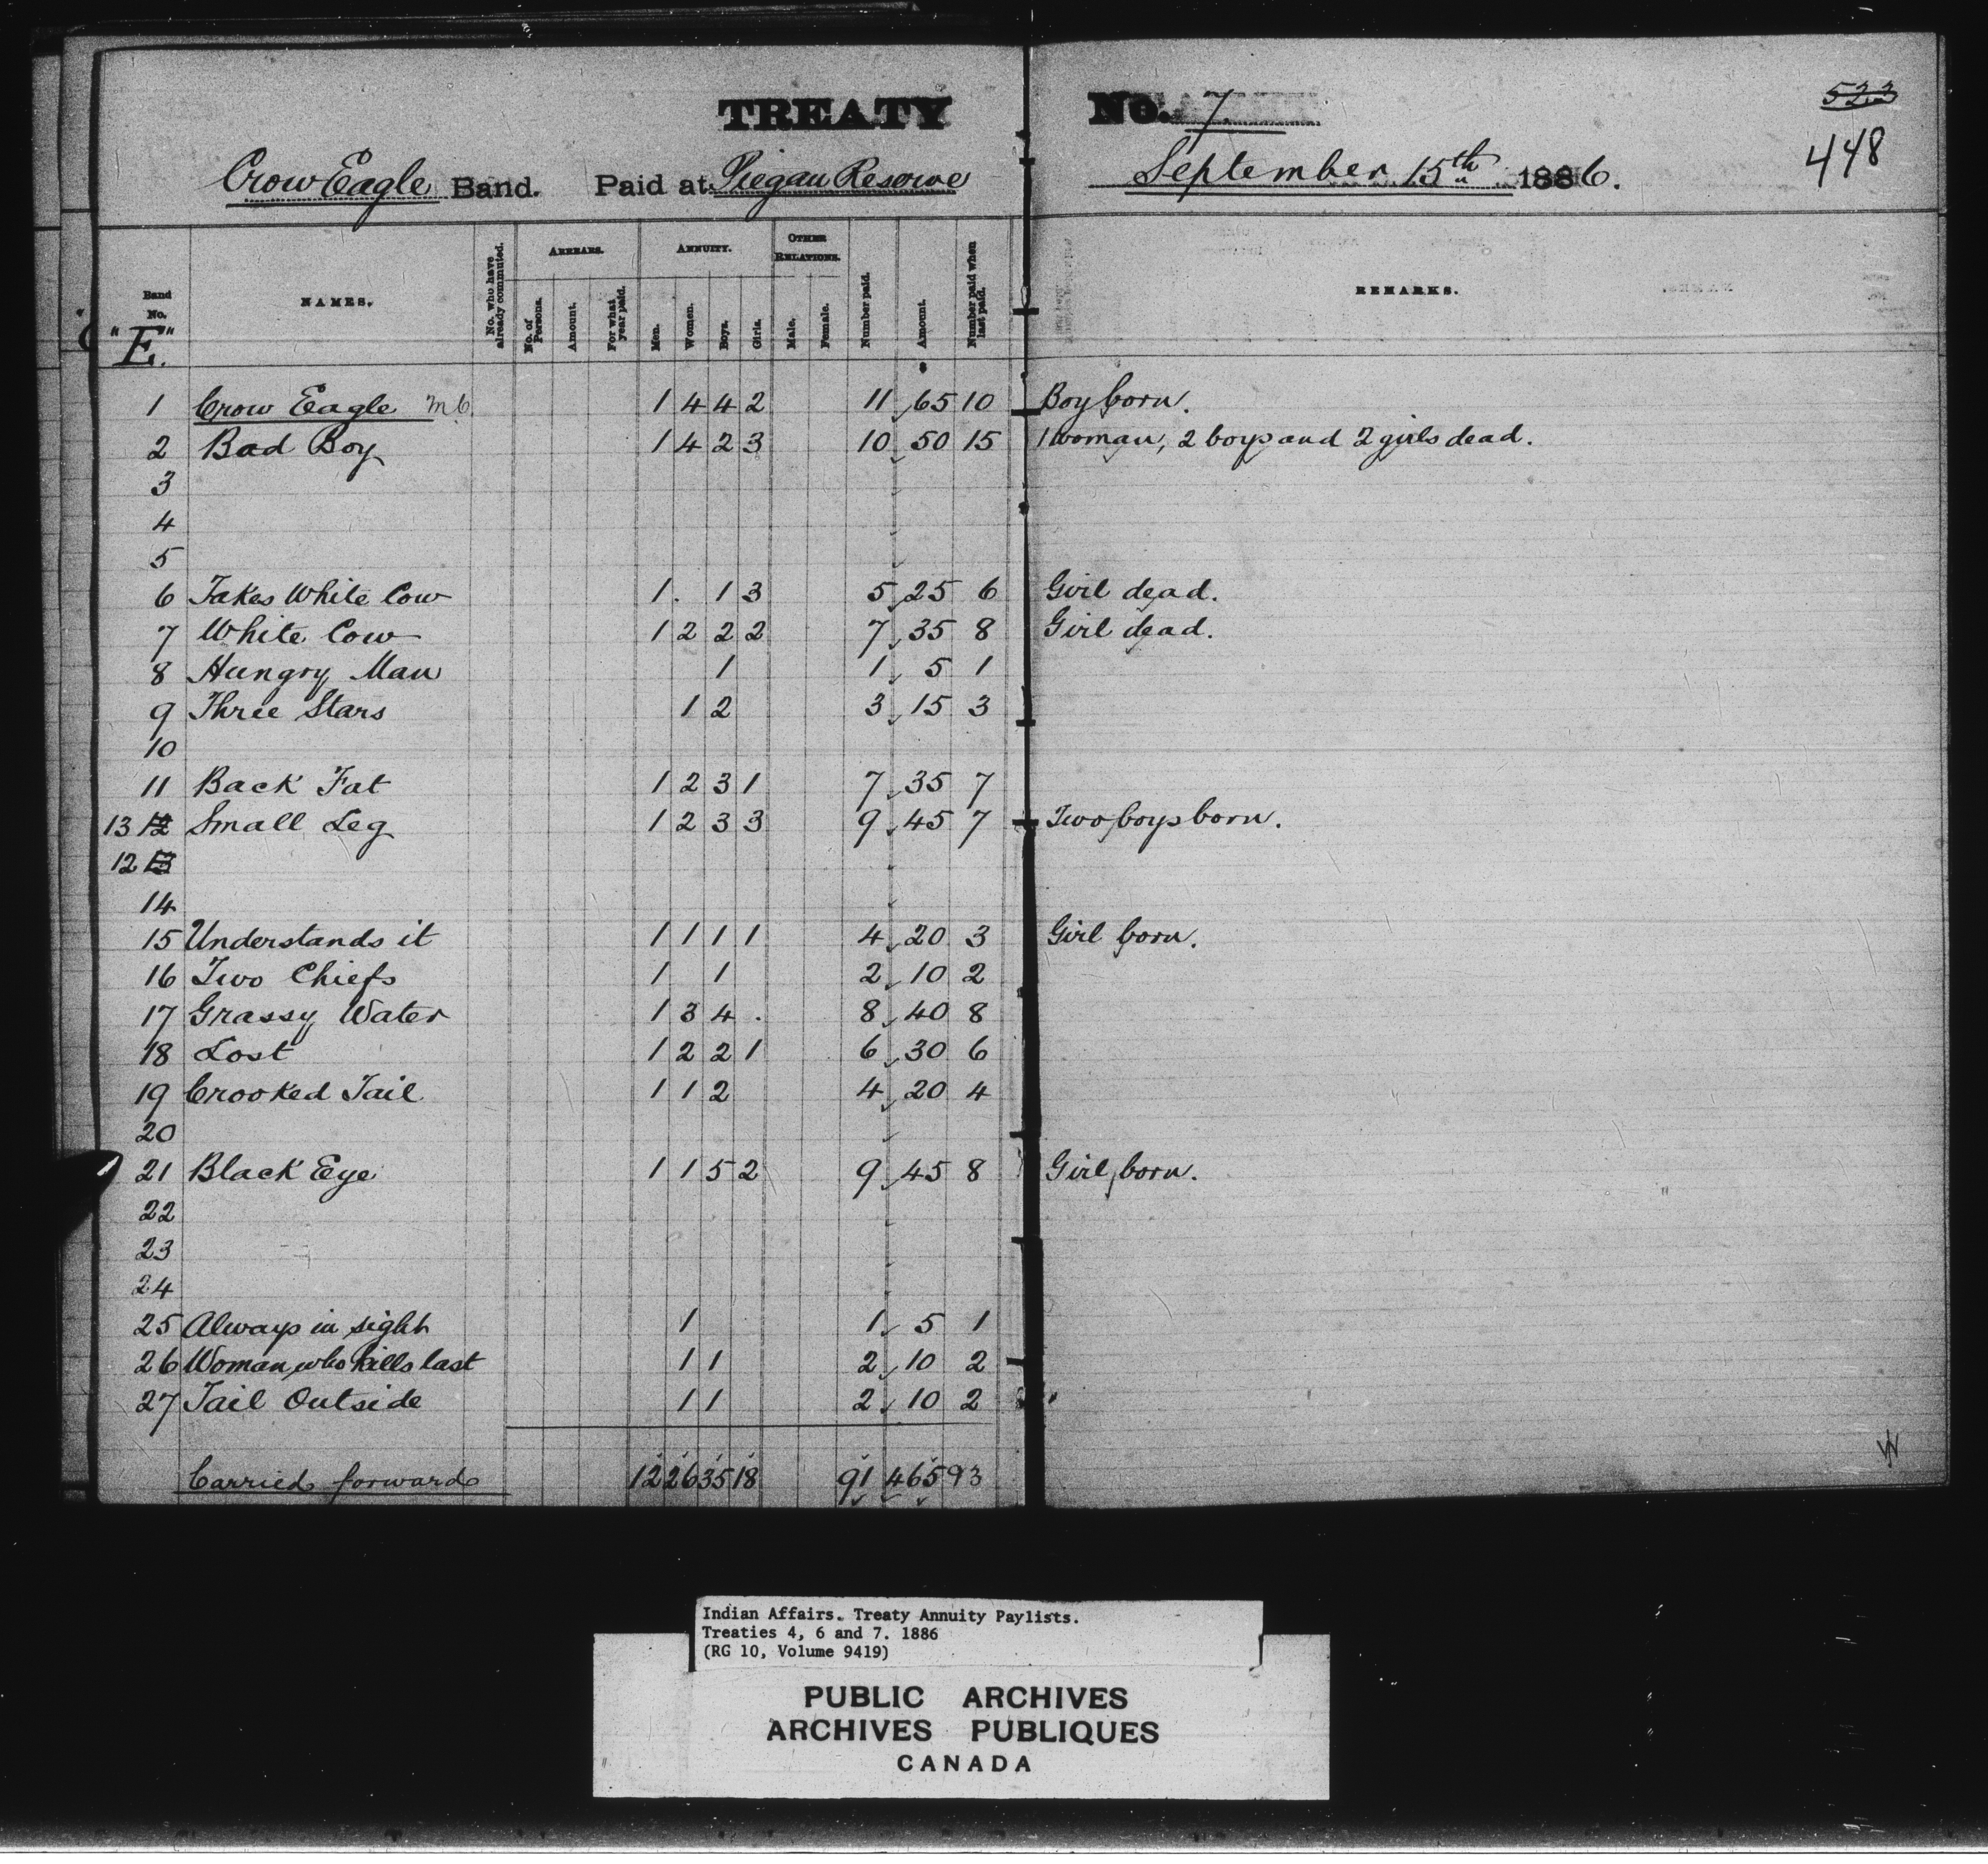 TREATY No. 7
523
448
Crow Eagle Band. Paid at Piegan Reserve September 15th 1886.
Band No. "E."
NAMES.
No. who have already commuted.
ARREARS.
No. of Persons.
Amount.
For what year paid.
ANNUITY.
Men.
Women.
Boys.
Girls.
OTHER RELATIONS.
Male.
Female.
Number paid.
Amount.
Number paid when last paid.
REMARKS.
1 Crow Eagle 1 4 4 2 11 65 10 Boy born.
2 Bad Boy 1 4 2 3 10 50 15 1 woman, 2 boys and 2 girls dead.
3
4
5
6 Takes White Cow 1 . 1 3 5 25 6 Girl dead.
7 White Cow 1 2 2 2 7 35 8 Girl dead.
8 Hungry Man 1 1 5 1
9 Three Stars 1 2 3 15 3
10
11 Back Fat 1 2 3 1 7 35 7
13 12 Small Leg 1 2 3 3 9 45 7 Two boys born.
12 13
14
15 Understands it 1 1 1 1 4 20 3 Girl born.
16 Two Chiefs 1 1 2 10 2
17 Grassy Water 1 3 4 . 8 40 8
18 Lost 1 2 2 1 6 30 6
19 Crooked Tail 1 1 2 4 20 4
20
21 Black Eye 1 1 5 2 9 45 8 Girl born.
22
23
24
25 Always in sight 1 1 5 1
26 Woman who kills last 1 1 2 10 2
27 Tail Outside 1 1 2 10 2
Carried forward 12 26 35 18 91 465 93
Indian Affairs. Treaty Annuity Paylists.
Treaties 4, 6 and 7. 1886
(RG 10, Volume 9419)
PUBLIC ARCHIVES
ARCHIVES PUBLIQUES
CANADA